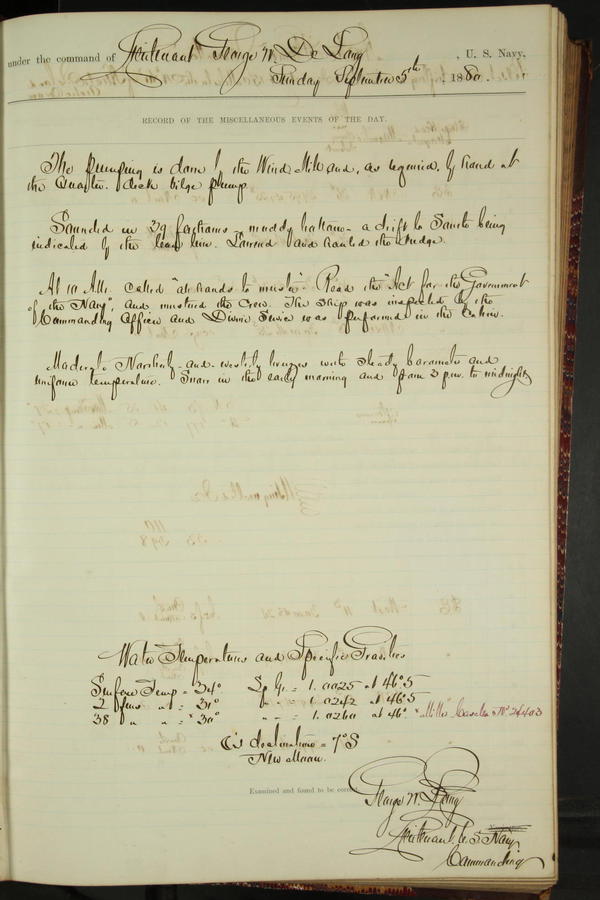 under the command of Lieutenant George W. De Long, U. S. Navy.
Sunday September 5th, 1880.
RECORD OF THE MISCELLANEOUS EVENTS OF THE DAY.
The pumping is done by the Wind Mill and, as required, by hand at
the Quarter-deck bilge pump.
Sounded in 39 fathoms - muddy bottom - a drift to South being
indicated by the lead line. Lowered and hauled the dredge.
At 10 A.M. called "all hands to muster". Read the "Act for the Government
of the Navy", and mustered the Crew. The Ship was inspected by the
Commanding Officer and Divine Service was performed in the Cabin.
Moderate Northerly and westerly breezes with steady barometer and
uniform temperature. Snow in the early morning and from 3 p.m. to midnight
Water Temperatures and Specific Gravities
Surface Temp = 34° Sp Gr. = 1.0025 at 46°.5
2 fms " = 31° " " = 1.0242 at 46°.5
38 " " = * 30° " " = 1.0260 at 46°. * "Miller" Casella No 24403
C's declination = 7° S
New Moon.
Examined and found to be correct.
George W. De Long
Lieutenant U. S. Navy
Commanding